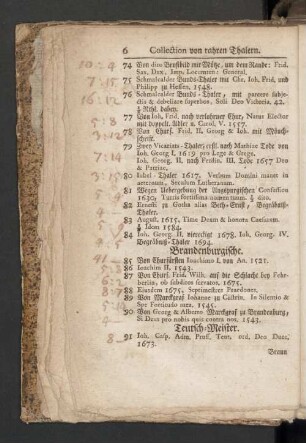 6 Collection von rahren Thalern.
74 Von dito Brustbild mit Mütze, um dem Rande: Frid.
Sax. Dux, Imp. Locumten: General.
75 Schmalcalder Bunds-Thaler mit Chr. Ioh. Frid. und
Philipp zu Hessen, 1548.
76 Schmalcalder Bunds-Thaler, mit parcere subje-
ctis & debellare superbos. Soli Deo Victoria. 42.
½ Rthl. haben.
77 Von Ioh. Frid. nach verlohrner Chur, Natus Elector
mit doppelt. Adler a. Carol. V. 1557.
78 Von Churf. Frid. II. Georg & Ioh. mit Mönch-
schrifft.
79 Zwey Vicariats-Thaler, erstl. nach Mathiae Tode von
Ioh. Georg I. 1619 pro Lege & Grege.
Ioh. Georg II. nach Ferdin. III. Tode 1657 Deo
& Patriae.
80 Iubel-Thaler 1617. Verbum Domini manet in
aeternum. Seculum Lutheranum.
81 Wegen Uebergebung der Augspurgischen Confession
1630.
83 August. 1615. Time Deum & honora Caesarem.
½ Idem 1584.
84 Ioh. Georg II. viereckigt 1678. Ioh. Georg. IV.
Begräbniß-Thaler 1694.
Brandenburgische.
85 Von Churfürsten Ioachimo I. von An. 1521.
86 Ioachim II. 1543.
87 Von Churf. Frid. Wilh. auf die Schlacht bey Fehr-
berlin, ob subditos servatos, 1675.
88 Eiusdem 1675.
89 Von Marckgraf Iohanne zu Cüstrin. In Silentio &
Spe Fortitudo mea. 1545.
90 Von Georg & Alberto Marckgraf zu Brandenburg,
Si Deus pro nobis quis contra nos. 1543.
Teutsch-Meister.
91 Ioh. Casp. Adm. Pruss. Teut. ord. Deo Duce,
1673.
Braun